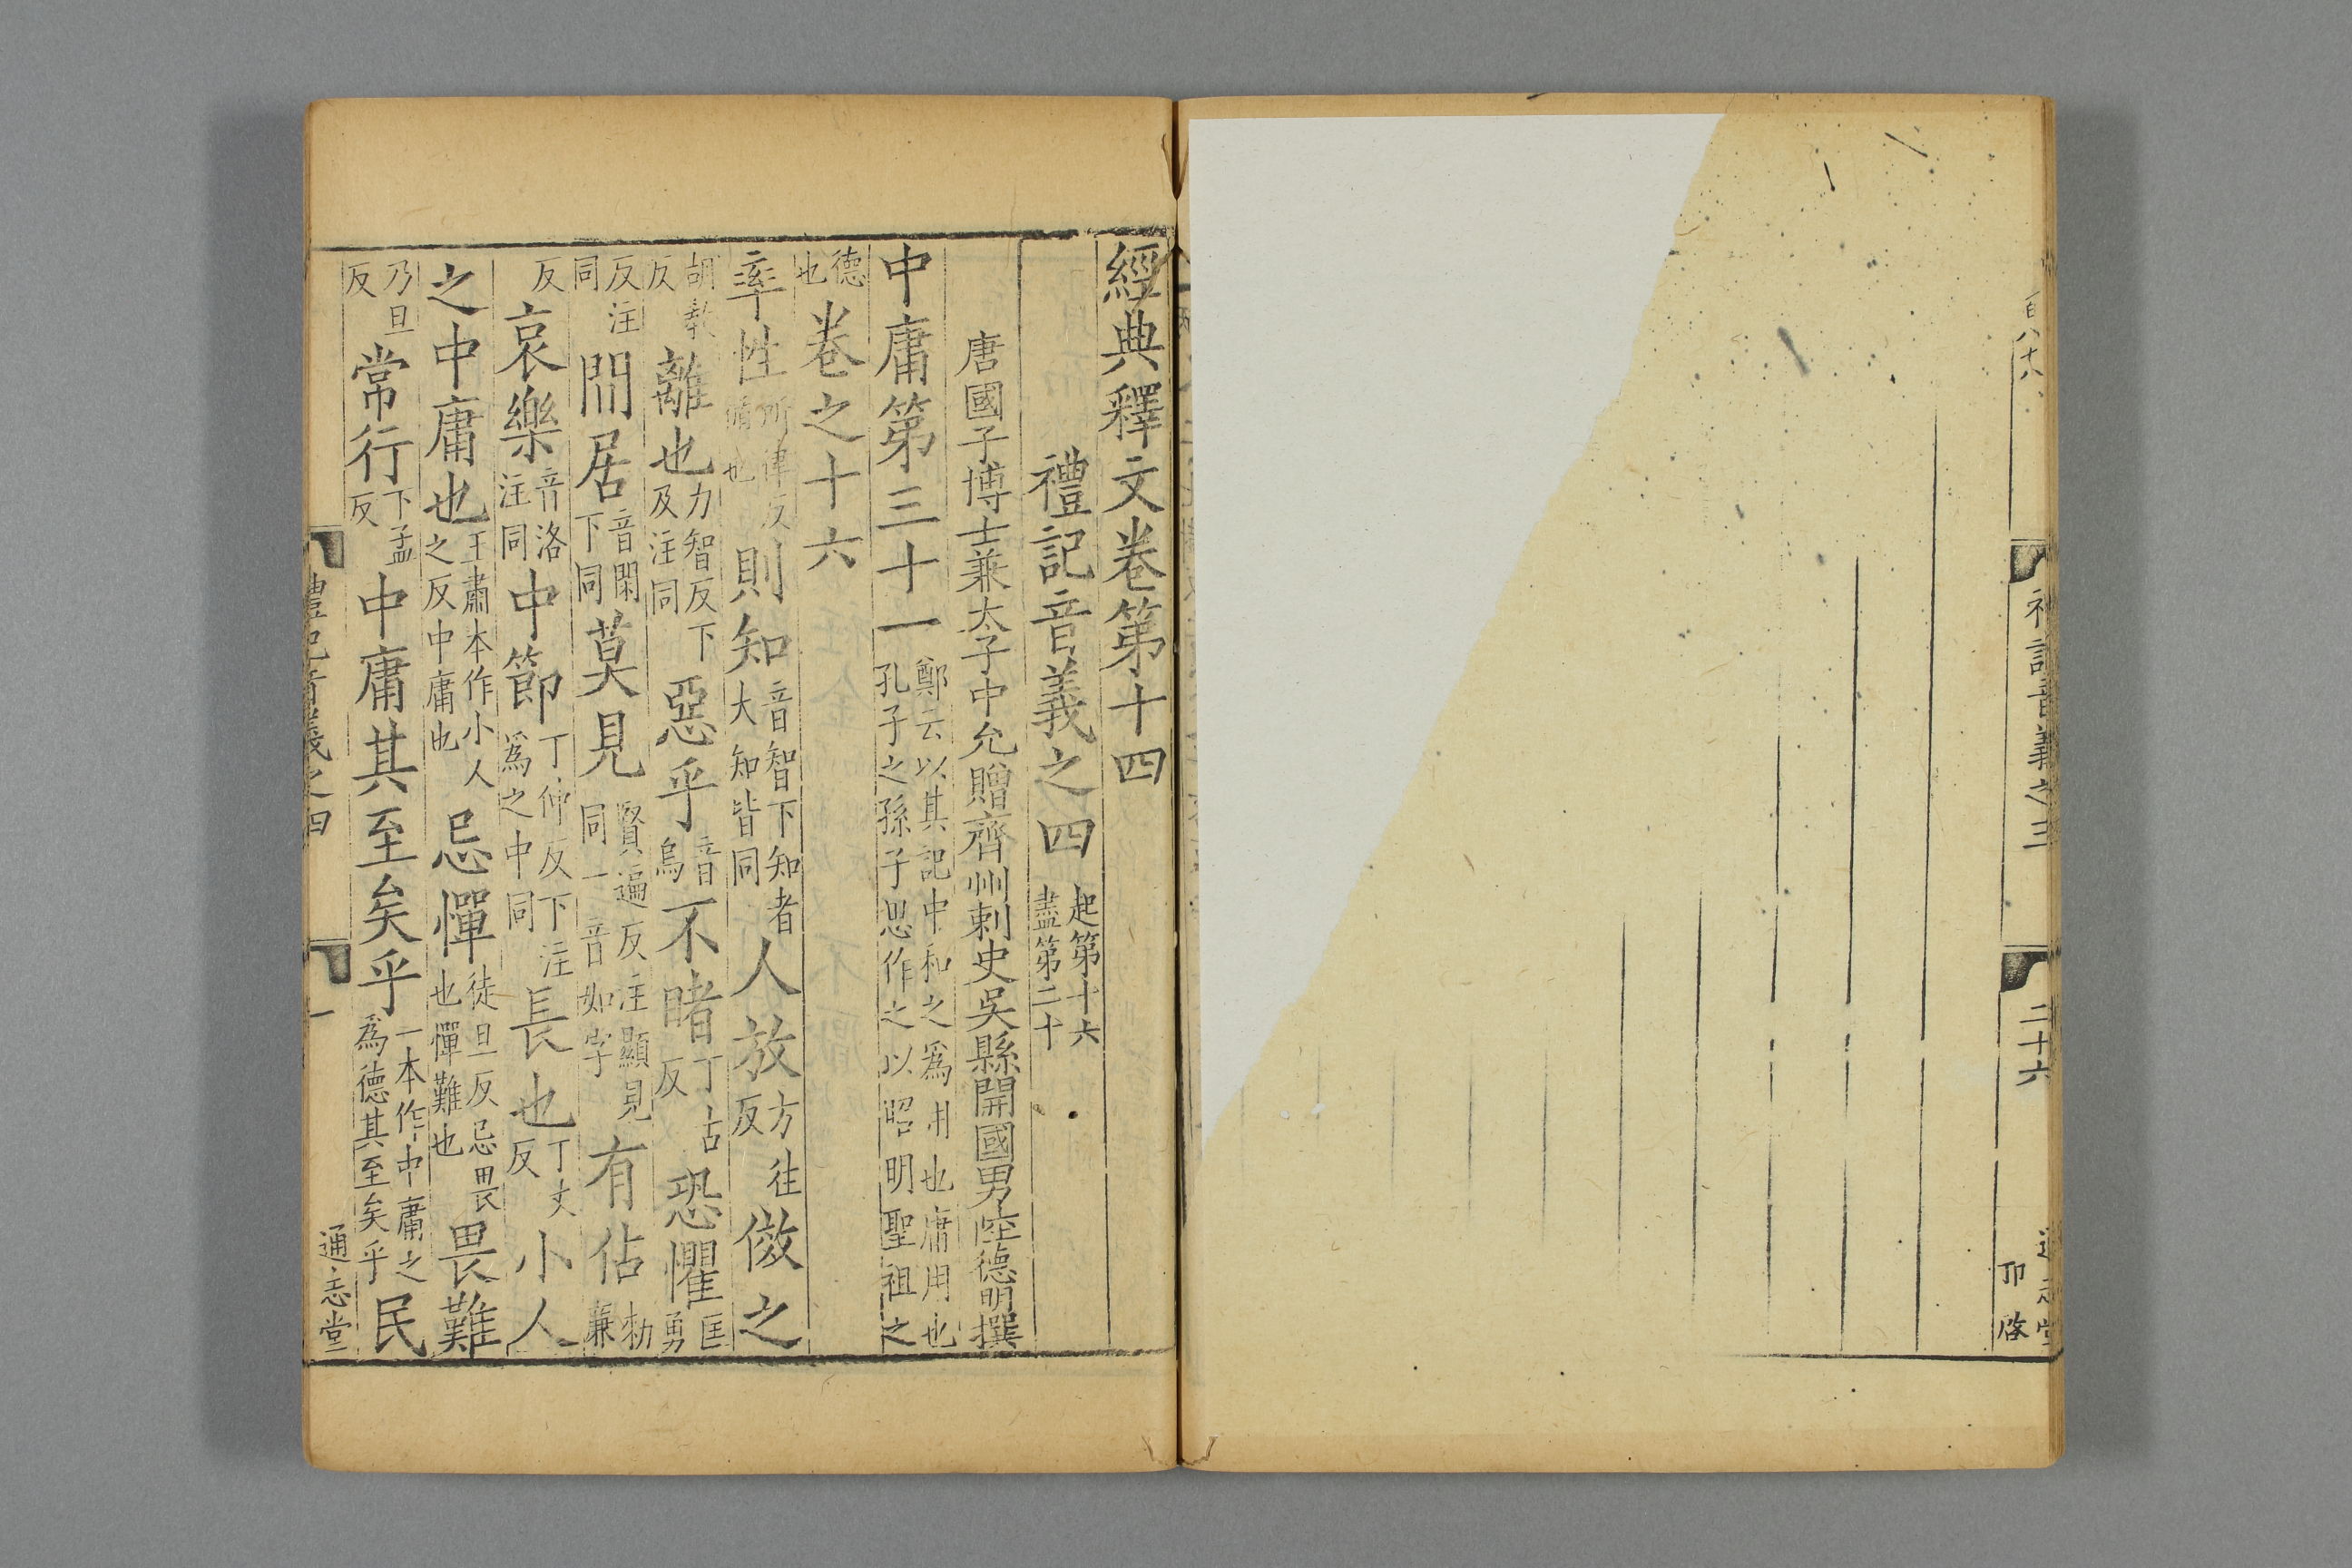 百八十八
禮記音義之三
二十六
通志堂
卬啓
經典釋文卷第十四
禮記音義之四 起第十六盡第二十
唐國子博士兼太子中允贈齊州刺史吳縣開國男陸德明撰
中庸第三十一 鄭云以其記中和之爲用也庸用也孔子之孫子思作之以昭明聖祖之
德也 卷之十六
率性 所律反循也 則知 音智下知者大知皆同 人放 方往反 傚之
胡教反 離也 力智反下及注同 惡乎 音烏 不睹 丁古反 恐懼 匡勇
反注同 閒居 音閑下同 莫見 賢遍反注顯見同一音如字 有佔 勑廉
反 哀樂 音洛注同 中節 丁仲反下注爲之中同 長也 丁丈反 小人
之中庸也 王肅本作小人之反中庸也 忌憚 徒旦反忌畏也憚難也 畏難
乃旦反 常行 下孟反 中庸其至矣乎 一本作中庸之爲德其至矣乎 民
禮記音義之四
一
通志堂